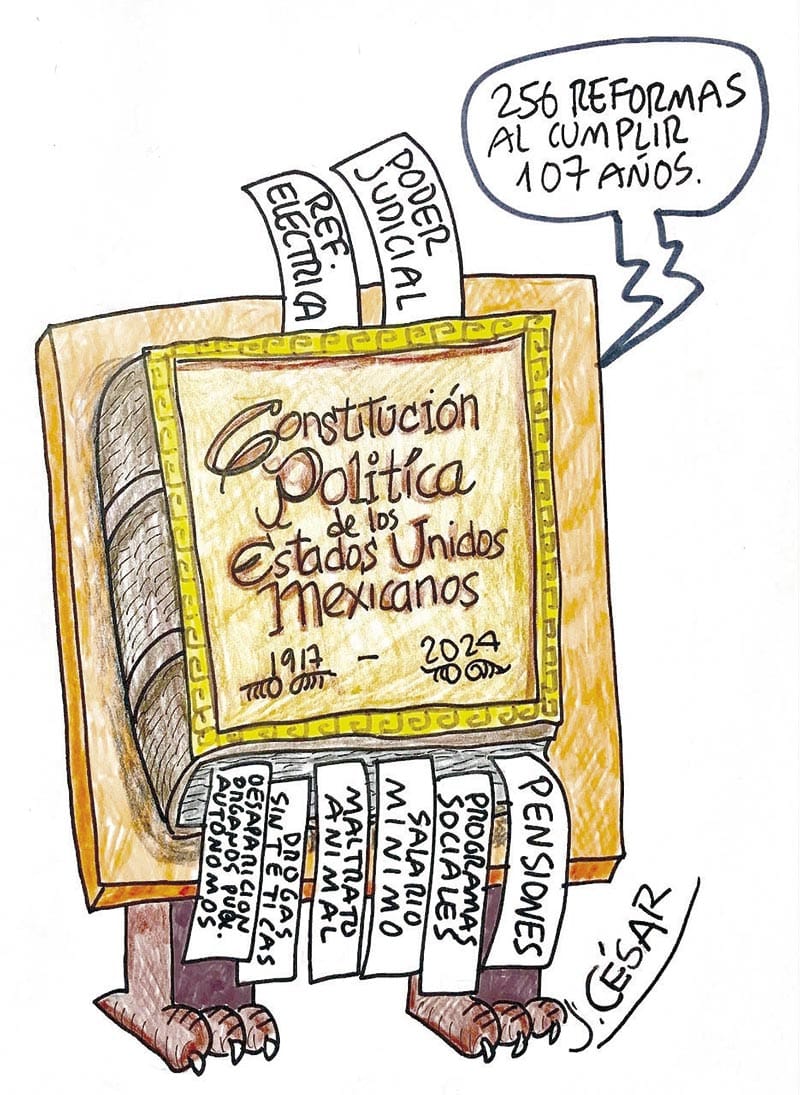 256 REFORMAS
AL CUMPLIR
107 AÑOS.
REF.
ELECTRICA
PODER
JUDICIAL
Constitución
Politíca
de los
Estados Unidos
Mexicanos
1917 - 2024
DESAPARICION
ORGANOS PUBL.
AUTÓNOMOS
DROGAS
SINTETICAS
MALTRATO
ANIMAL
SALARIO
MINIMO
PROGRAMAS
SOCIALES
PENSIONES
J. CÉSAR